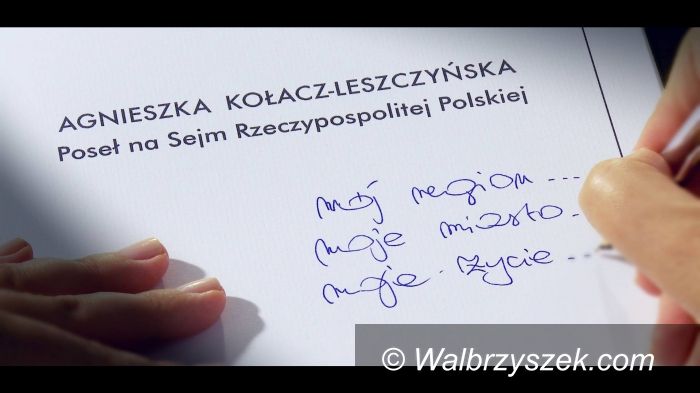 AGNIESZKA KOŁACZ-LESZCZYŃSKA
Poseł na Sejm Rzeczypospolitej Polskiej
mój region ...
moje miasto.
moje życie ...
© Walbrzyszek.com